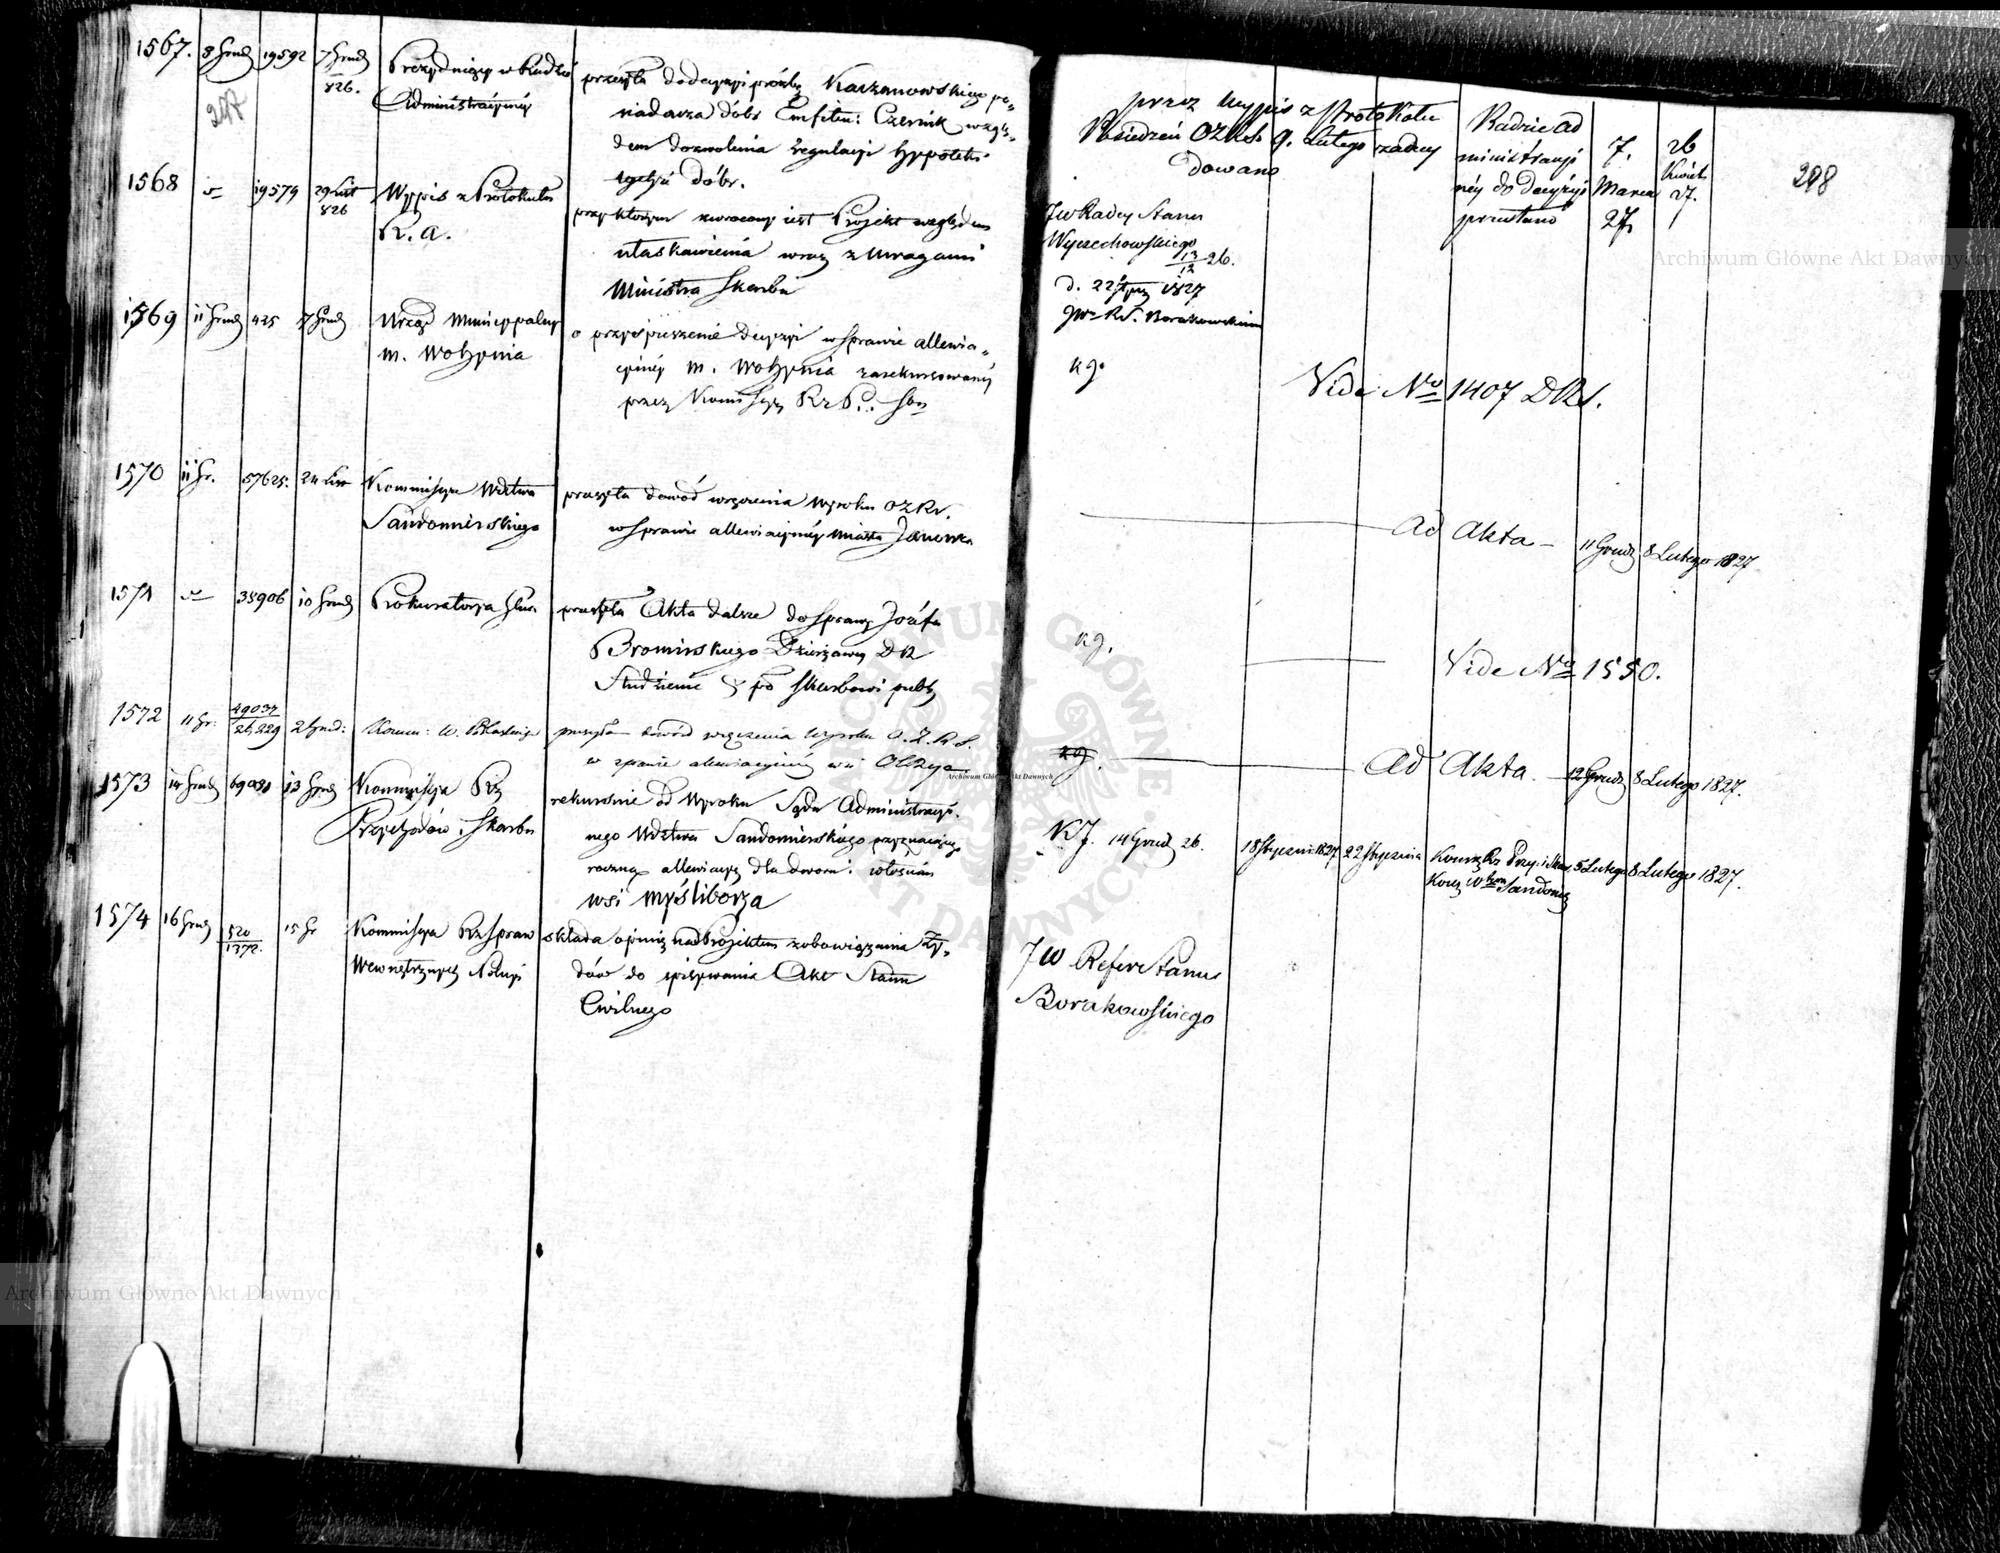 1567. 8 Grud 19592 7 Grud 826. Prezydujący w Radzie Administracyjnéy
przesyła do decyzyi prośbę Kaczanowskiego po-
siadacza dóbr Emfiteu: Czernik wzglę-
dem dozwolenia regulacyi hypoteki
tychże dóbr.
247
1568 19574 29 List 826 Wypis z Protokułu R. A.
przy którym zwrócony iest Projekt względem
ułaskawienia wraz z uwagami
Ministra Skarbu
1569 11 Grud 425 7 Grud Urząd Municypalny m. Wohynia
o przyspieszenie decyzyi w sprawie allewia-
cyinéy m. Wohynia zarekursowanéy
przez Kommissyę Rz. P. i Sk
1570 11 Gr. 57625. 24 List Kommissya Wdztwa Sandomirskiego
przesyła dowód wręczenia wyroku OZRS.
w sprawie allewiacyinéy miasta Janowca
1571 38906 10 Grud Prokuratorya Gener.
przesyła Akta dalsze do sprawy Józefa
Bromirskiego Dzierżawcy DN
Studzienic po Skarbowi publ
1572 11 Gr: 49037 26,229 2 Grud: Komm: W. Podlaskiego
przesyła dowód wręczenia wyroku O.Z.R.S.
w sprawie alewiacyinéy wsi Olszyc
1573 14 Grud 69031 13 Grud Kommissya Rz Przychodów i Skarbu
rekursuie od Wyroku Sądu Administracyi-
nego Wdztwa Sandomirskiego przyznaiącego
roczną allewiacyę dla dworu i włościan
wsi Myśliborza
1574 16 Grud 520 1372. 15 Gr Kommissya Rz Spraw Wewnętrznych i Policyi
składa opinię nad Projektem zobowiązania Ży-
dów do spisywania Akt Stanu
Cywilnego
przez wypis z Protokołu
Posiedzeń OZRS. 9. Lutego zadecy
dowano
Radzie Ad
ministracyi
néy do decyzyi
przesłano
7. Marca 27
26 Kwiet 27.
298
JW Radcy Stanu
Wyczechowskiego
13/12 26.
d. 22 Stycz 1827
JW RS. Borakowskiem
kg.
Vide No 1407 DRS.
Ad Akta — 11 Grud 8 Lutego 1827
kg.
Vide No 1550.
kg.
Ad Akta. — 12 Grud 8 Lutego 1827.
KJ. 14 Grud 26. 18 Stycznia 1827 22 Stycznia Komis Rz Przy. i Skar 5 Lutego 8 Lutego 1827.
Komis Wdztwa Sandomir
JW Refer Stanu
Borakowskiego
Archiwum Główne Akt Dawnych
Archiwum Główne Akt Dawnych
Archiwum Główne Akt Dawnych
ARCHIWUM GŁÓWNE AKT DAWNYCH